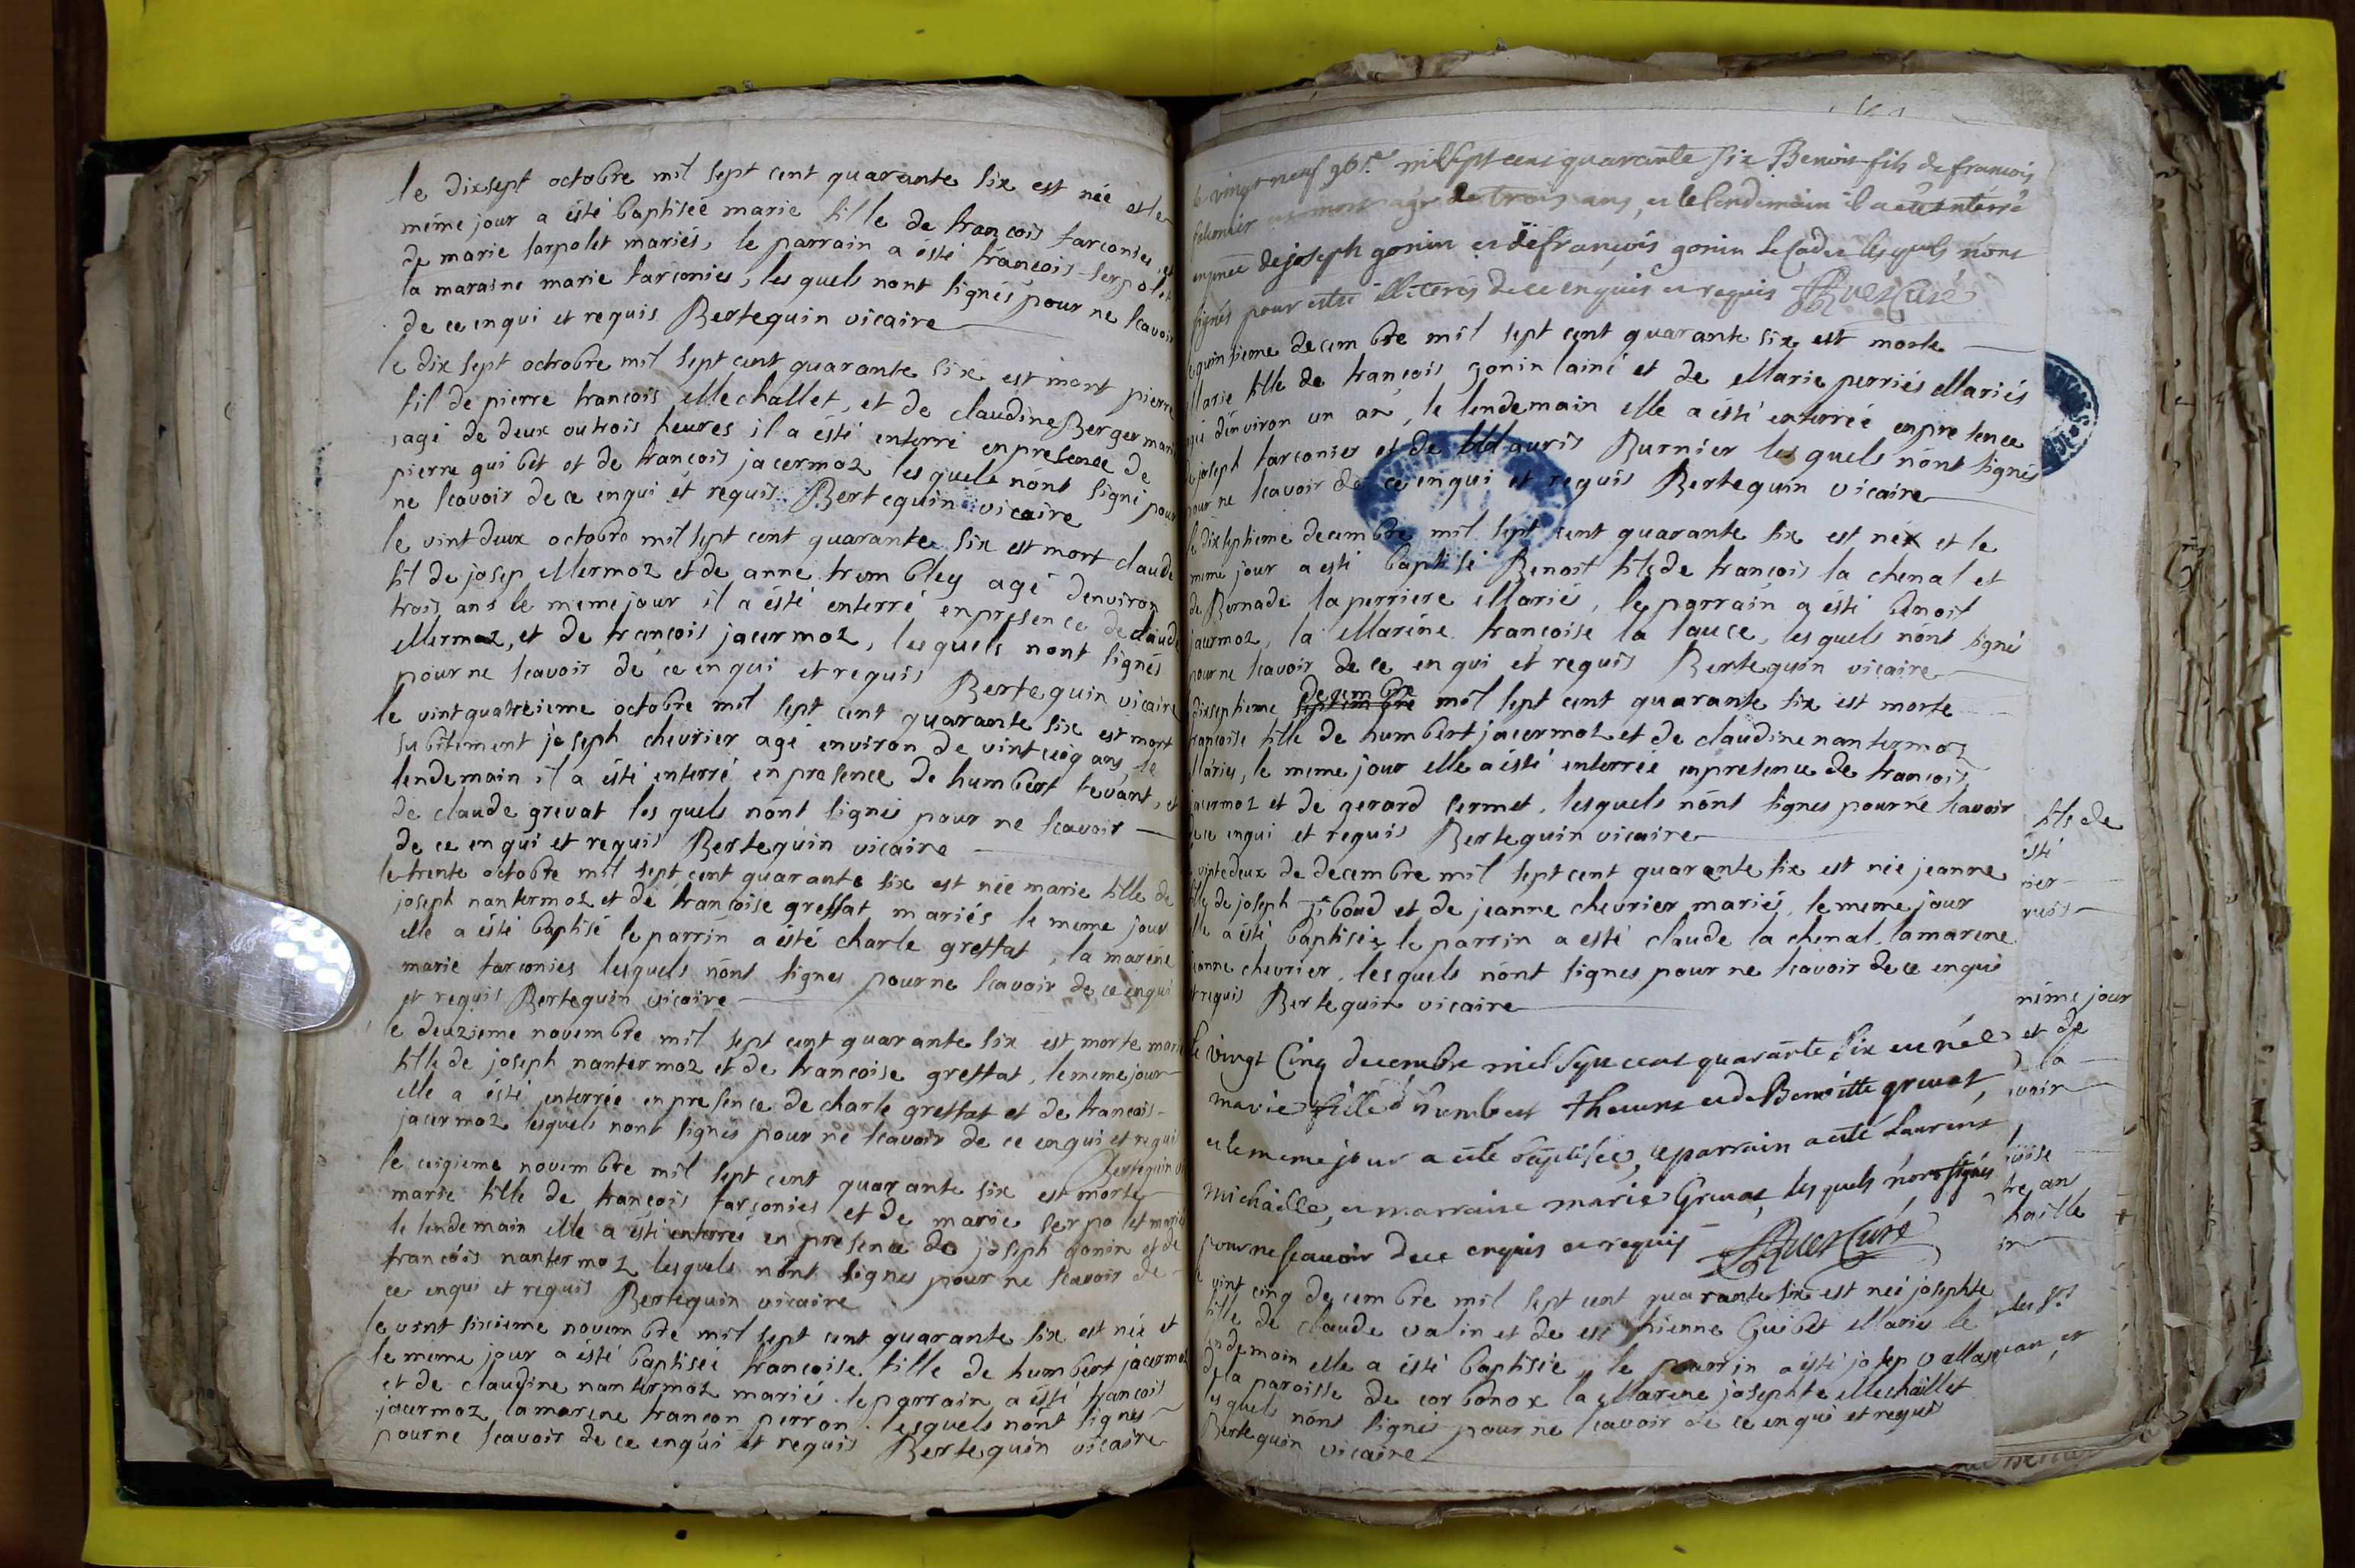 le dixsept octobre mil sept cent quarante six est née et le
même jour a ésté baptiseé marie fille de francois farconies et
de marie sarpolet mariés, le parrain a ésté francois serpolet
la maraine marie farconies, les quels nont signés pour ne scavoir
de ce inqui et requis Bertequin vicaire
le dix sept octrobre mil sept cent quarante six est mort pierre
fil de pierre francois Mechallet, et de claudine Berger mariés
agé de deux ou trois heures il a ésté enterré en presence de
pierre guibet et de francois jacermoz les quels nónt signé pour
ne scavoir de ce inqui et requis Bertequin vicaire
le vint deux octobre mil sept cent quarante six est mort claude
fil de josep Mermoz et de anne trembley agé denviron
trois ans le meme jour il a ésté enterré en presence de claude
Mermoz, et de francois jacermoz, les quels nont signés
pour ne scavoir de ce en qui et requis Bertequin vicaire
le vint quatreieme octobre mil sept cent quarante six est mort
subitement joseph chevrier agé environ de vint cinq ans, le
lendemain il a ésté enterré en presence de humbert tevant, et
de claude grevat les quels nónt signés pour ne scavoir
de ce en qui et requis Bertequin vicaire
le trente octobre mil sept cent quarante six est née marie fille de
joseph nantermoz et de francoise greffat mariés le meme jour
elle a ésté baptisé le parrin a ésté charle greffat, la marene
marie farconies lesquels nónt signes pour ne scavoir de ce enqui
et requis Bertequin vicaire
le deuzieme novembre mil sept cent quarante six est morte marie
fille de joseph nantermoz et de francoise greffat, le meme jour
elle a ésté enterrée en presence de charle greffat et de francois
jacermoz lesquels nont signés pour ne scavoir de ce enqui et requis
Bertequin
le cinqieme novembre mil sept cent quarante six est morte
marie fille de francois farconies et de marie serpolet mariés
le lendemain elle a ésté enterreé en presence de joseph gonin et de
francois nantermoz lesquels nónt signes pour ne scavoir de
ce enqui et requis Bertequin vicaire
le vint sixieme novembre mil sept cent quarante six est née et
le meme jour a ésté baptiseé francoise fille de humbert jacermoz
et de claudine nantermoz mariés. le parrain a ésté francois
jacermoz la marene francon perron. lesquels nónt signes
pour ne scavoir de ce enqui et requis Bertequin vicaire
le vingt neuf 9bre mil sept cens quarante six Benoit fils de francois
est mort agé de trois ans, et le lendemain il a eté enterré
en pnce de joseph gonin et de francois gonin le cadet lesquels nont
signés pour estre illiterés de ce enquis et requis Curé
quinsieme decembre mil sept cent quarante six est morte
Marie fille de francois gonin lainé et de Marie perriés Mariés
agé dénviron un an, le lendemain elle a ésté enterrée en presence
de joseph farconier et de Mauris Burnier les quels nónt signés
pour ne scavoir de ce enqui et requis Bertequin vicaire
le dixseptieme decembre mil sept cent quarante six est né et le
meme jour a esté baptisé Benoit fils de francois la chenal et
de Bernade la perriere Mariés, le parrain a ésté benoit
jacermoz, la Marene francoise la sauce, les quels nónt signé
pour ne scavoir de ce en qui et requis Bertequin vicaire
decembre
dixseptieme septembre mil sept cent quarante six est morte
francoise fille de humbert jacermoz et de claudine nantermoz
Mariés, le meme jour elle a ésté enterrée en presence de francois
jacermoz et de gerard sermet, lesquels nónt signes pour ne scavoir
de ce enqui et requis Bertequin vicaire
vinte deux de decembre mil sept cent quarante six est née jeanne
fille de joseph Jiboud et de jeanne chevrier mariés, le meme jour
elle a ésté baptisée le parrin a esté claude la chenal, la marene
jeanne chevrier, lesquels nónt signes pour ne scavoir de ce enqui
et requis Bertequin vicaire
le vingt Cinq decembre mil sept cens quarante six est née
marie fille d'humbert thevens et de Benoitte grevat,
et le meme jour a eté baptisée, le parrain a eté Laurens
michaille, et marraine marie Grevat, lesquels nont signés
pour ne scavoir de ce enquis et requis Curé
le vint cinq decembre mil sept cent quarante six est née josephte
fille de claude valin et de esthienne Guibet Mariés le
lendemain elle a ésté baptisée, le parrin a ésté josep vallas
de la paroisse de corbonox la Marene josephte Mechaillet
les quels nónt signés pour ne scavoir de ce en qui et requis
Bertequin vicaire
fils de
ésté
méme jour
et de
la
les Srs